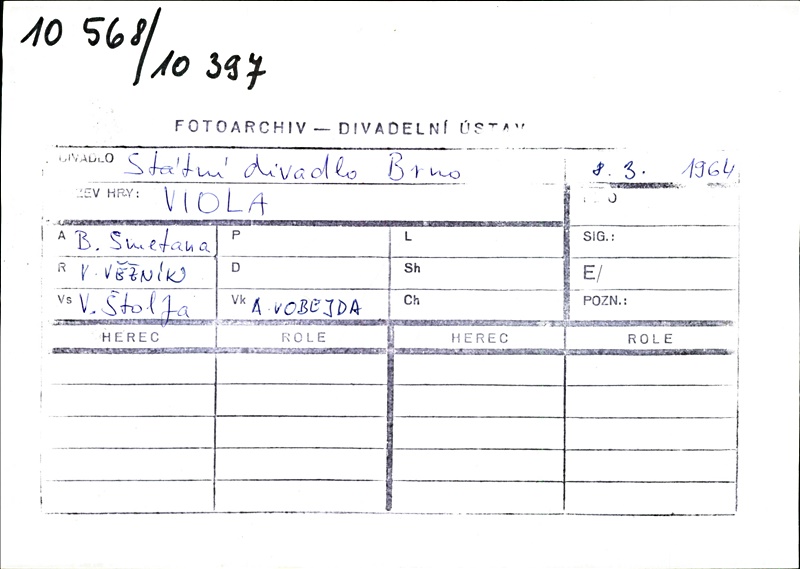 10 568/
10 397
FOTOARCHIV — DIVADELNÍ ÚSTAV
DIVADLO Státní divadlo Brno 8. 3. 1964
ZEV HRY: VIOLA
A B. Smetana P L SIG.:
R V. VĚŽNÍK D Sh E/
Vs V. Štolfa Vk A. VOBEJDA Ch POZN.:
HEREC ROLE HEREC ROLE